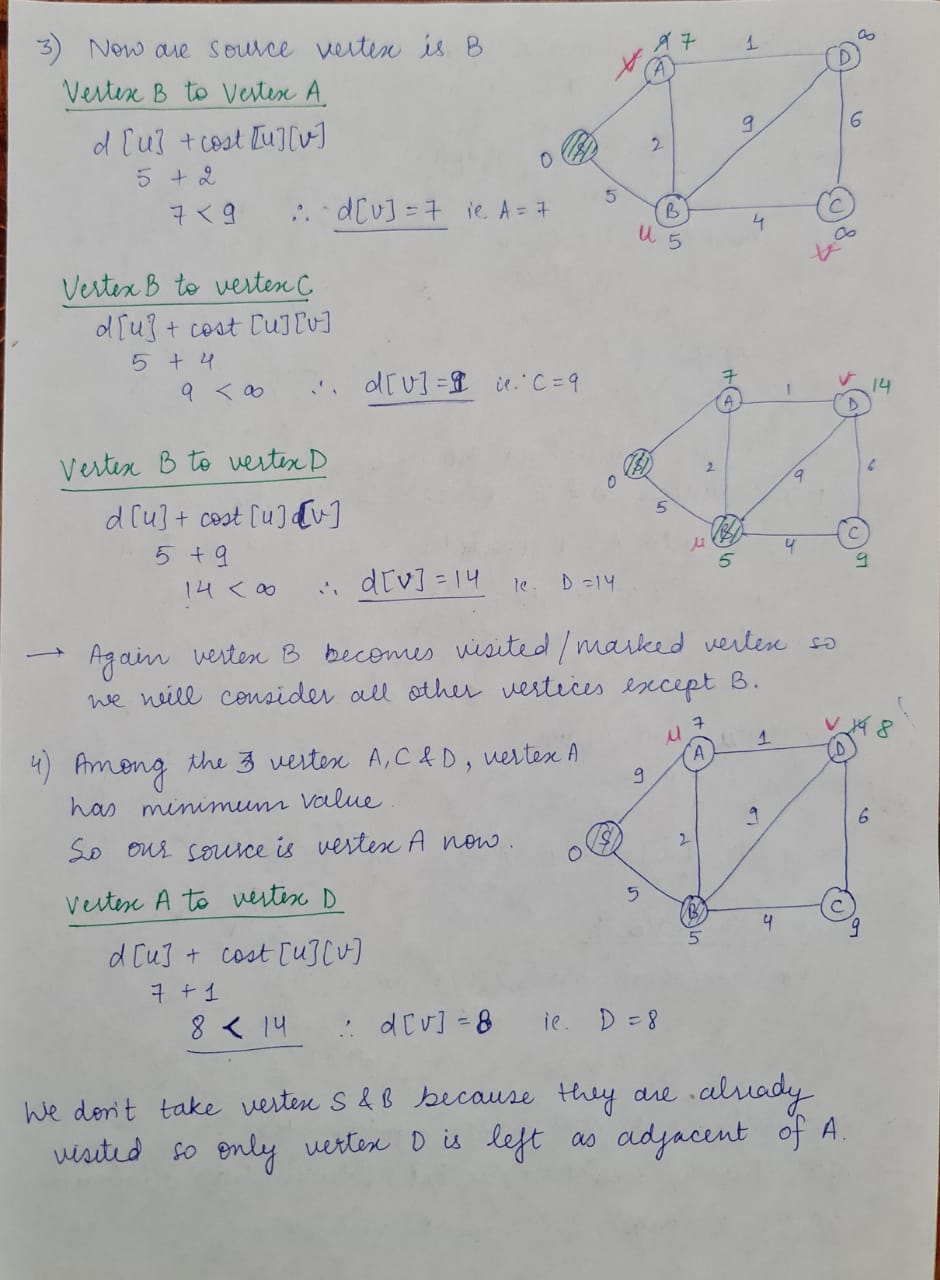 3) Now are source vertex is B
Vertex B to Vertex A
d[u] + cost[u][v]
5 + 2
7 < 9 ∴ d[v] = 7 ie. A = 7
7
A
1
D
∞
S
0
2
9
6
5
B
u
5
4
C
∞
v
Vertex B to vertex C
d[u] + cost [u][v]
5 + 4
9 < ∞ ∴ d[v] = 9 ie. C = 9
7
A
1
v
D
14
S
0
2
9
6
5
u
B
5
4
C
9
Vertex B to vertex D
d[u] + cost[u][v]
5 + 9
14 < ∞ ∴ d[v] = 14 ie. D = 14
→ Again vertex B becomes visited/marked vertex so
we will consider all other vertices except B.
4) Among the 3 vertex A, C & D, vertex A
has minimum value.
So our source is vertex A now.
u
7
A
1
v
D
14 8
9
S
0
2
9
6
5
B
5
4
C
9
Vertex A to vertex D
d[u] + cost[u][v]
7 + 1
8 < 14 ∴ d[v] = 8 ie. D = 8
We don't take vertex S & B because they are already
visited so only vertex D is left as adjacent of A.